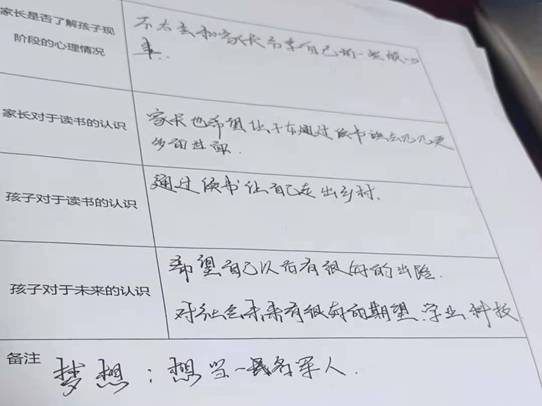 家长是否了解孩子现
阶段的心理情况
不太去和家长分享自己的一些烦心
事.
家长对于读书的认识
家长也希望让子女通过读书
多的
孩子对于读书的认识
通过读书让自己走出乡村.
孩子对于未来的认识
希望自己以后有很好的出路.
对社会未来有很好的期望.学业 科技
备注
梦想：想当一名军人.